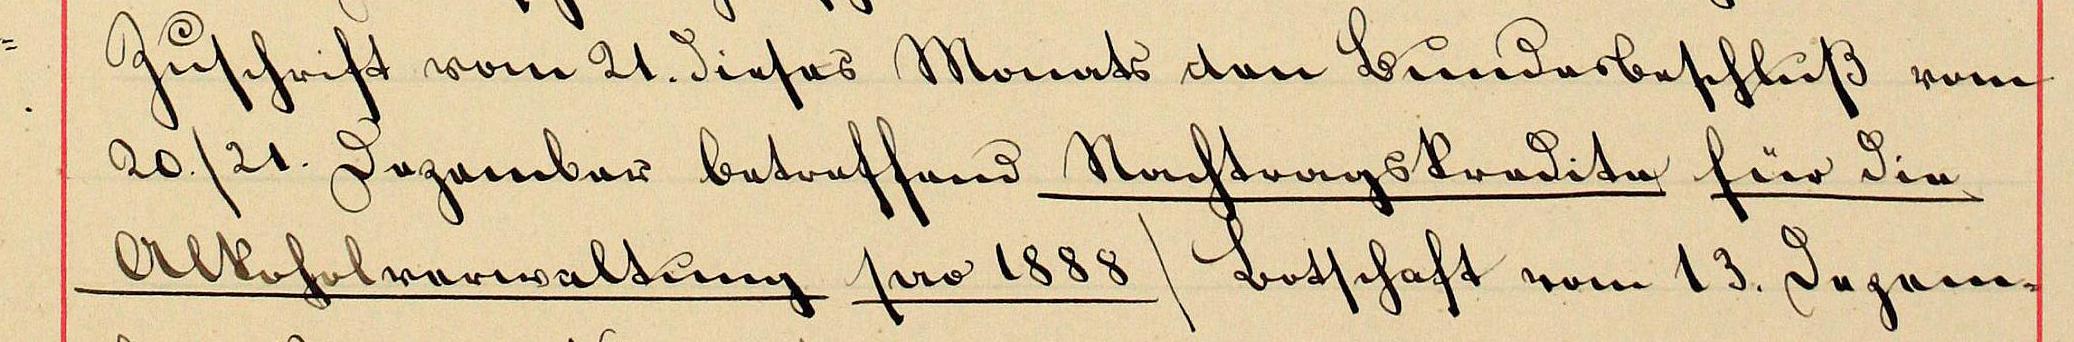 Zuschrift vom 21. dieses Monats den Bundesbeschluß vom
20./21. Dezember betreffend Nachtragskredite für die
Alkoholverwaltung pro 1888 / Botschaft vom 13. Dezem-